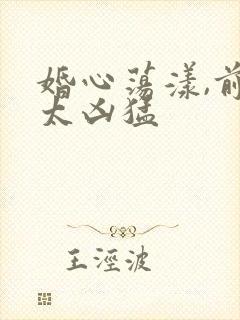 婚心荡漾,前
太凶猛
王淫波